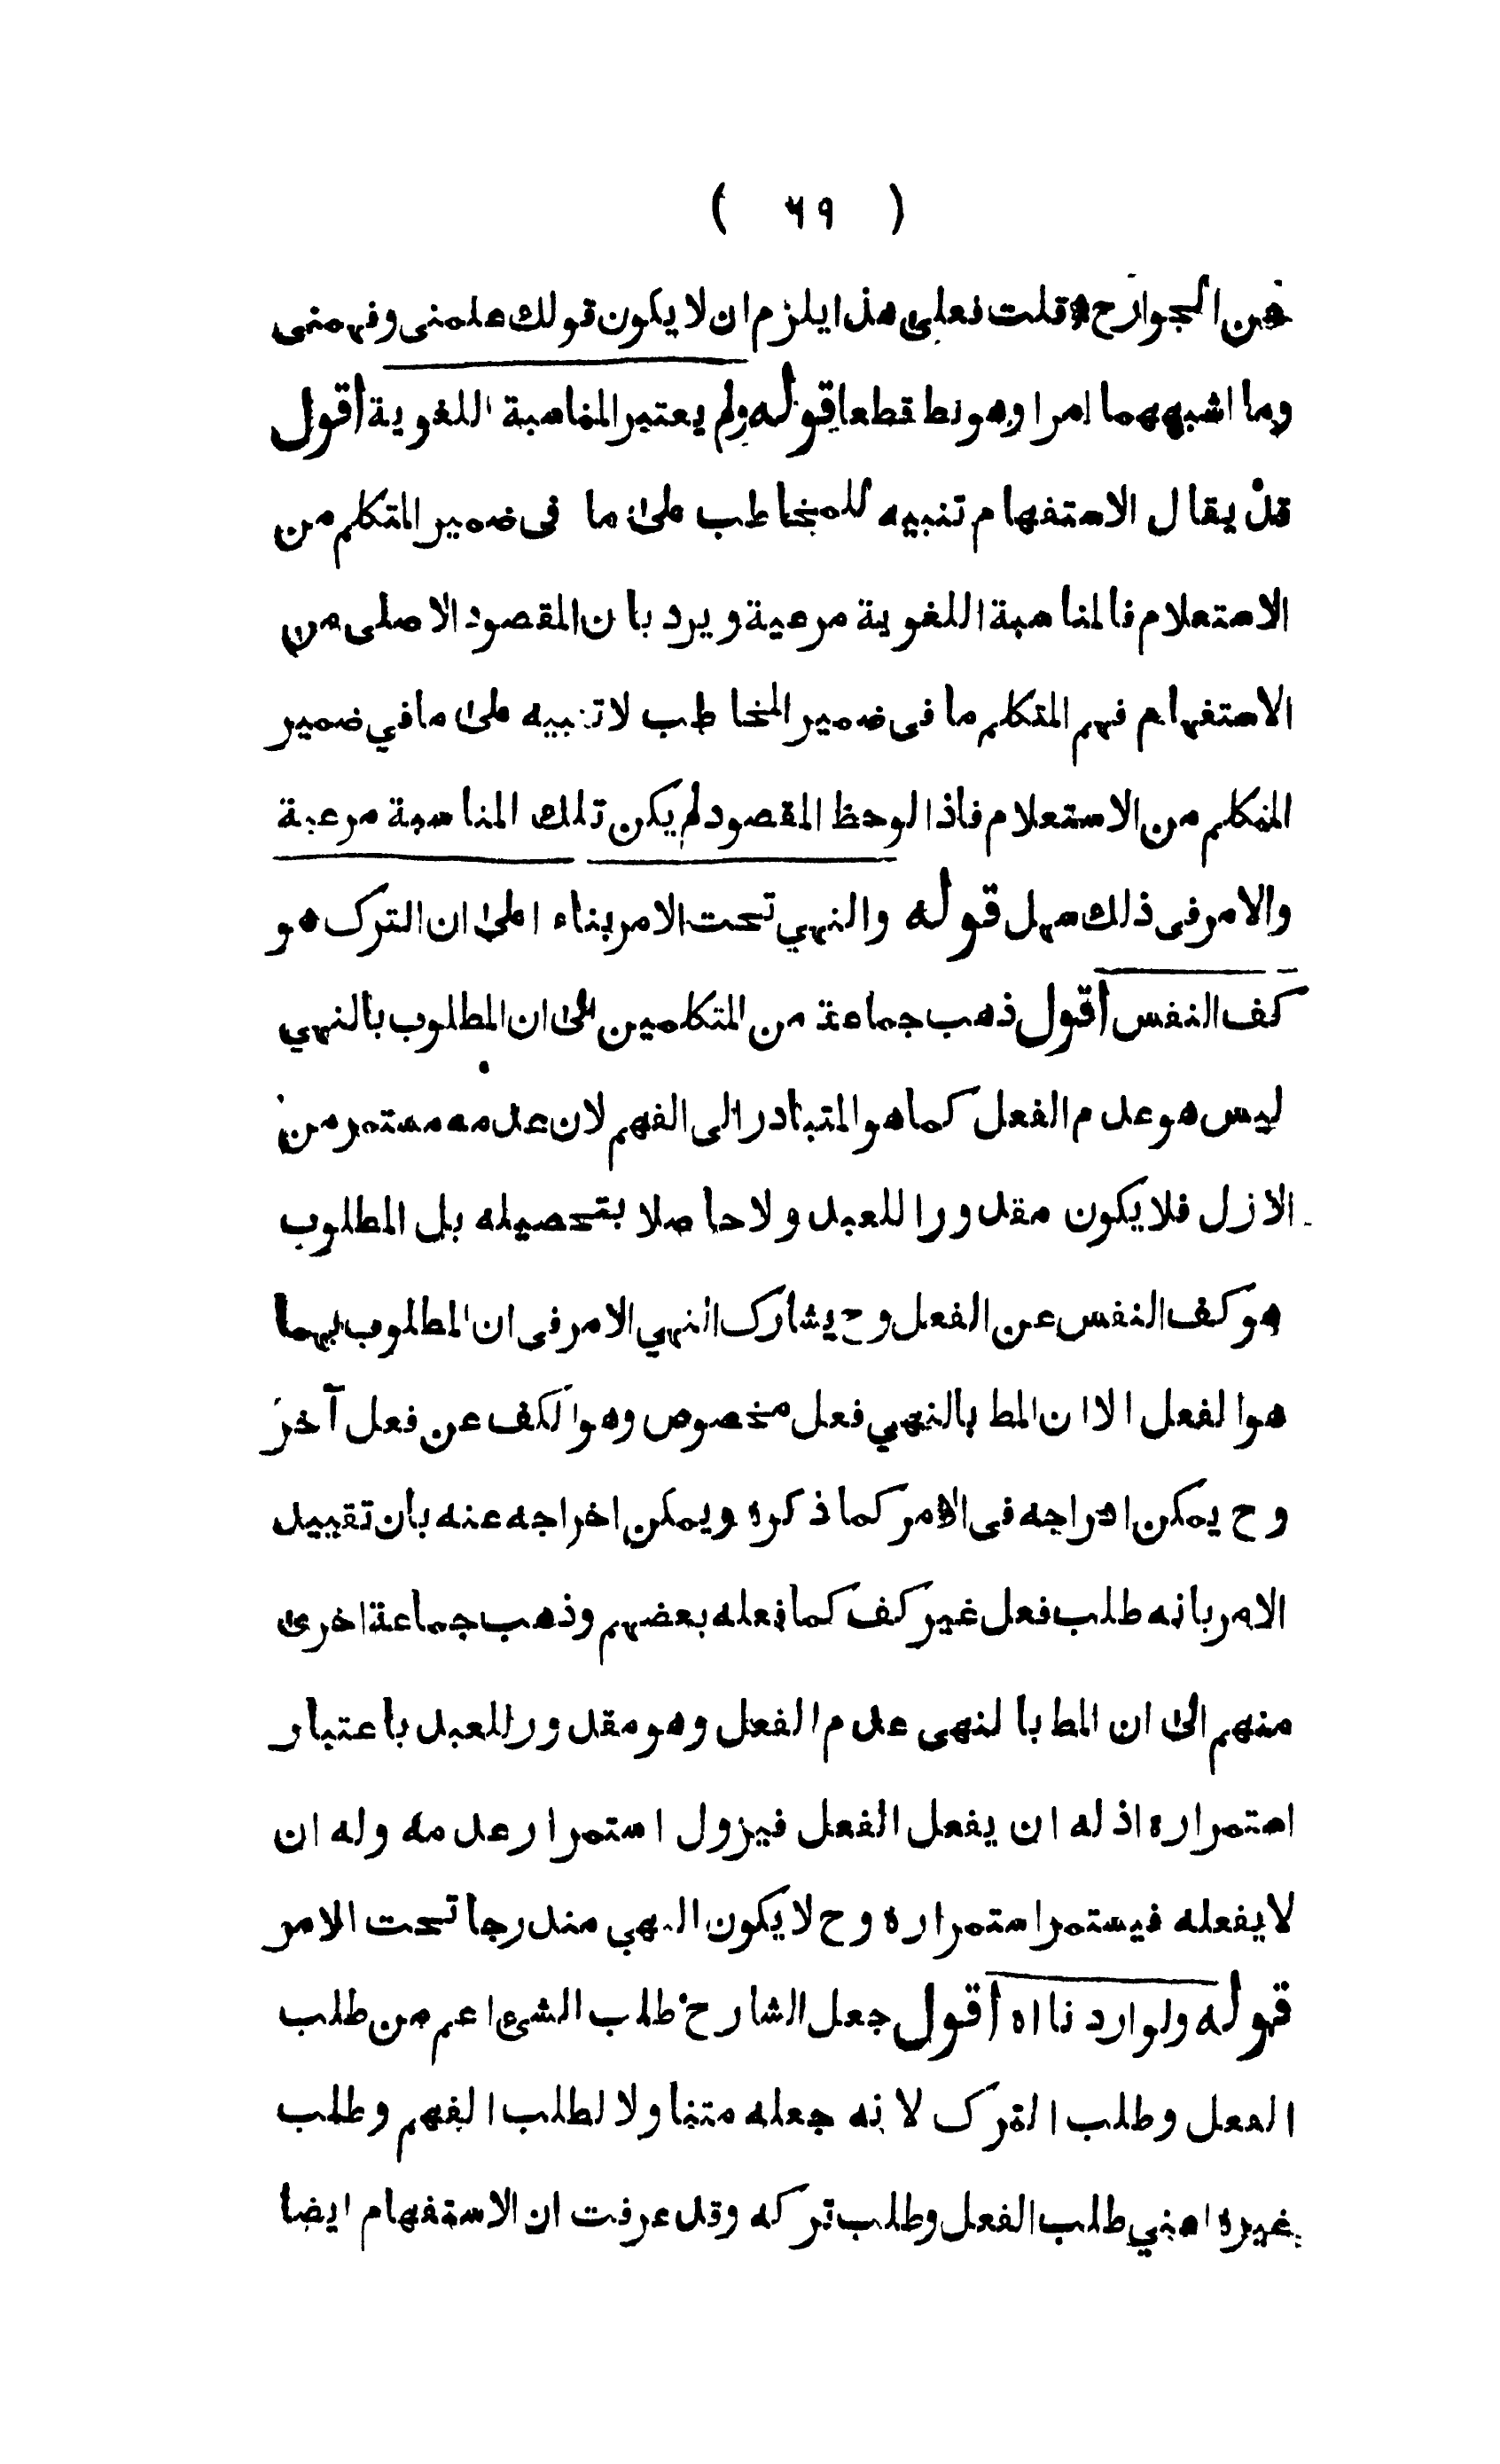 ( ٦٩ )
من الجوارح * قلت فعلى هذا يلزم ان لا يكون قولك علمنى وفهمنى
وما اشبههما امرا وهو بط قطعا قوله ولم يعتبر المناسبة اللغوية أقول
قد يقال الاستفهام تنبيه للمخاطب على ما فى ضمير المتكلم من
الاستعلام فالمناسبة اللغوية مرعية ويرد بان المقصود الاصلى من
الاستفهام فهم المتكلم ما فى ضمير المخاطب لا تنبيه على ما في ضمير
المتكلم من الاستعلام فاذا لوحظ المقصود لم يكن تلك المناسبة مرعية
والامر فى ذلك سهل قوله والنهي تحت الامر بناء على ان الترك هو
كف النفس أقول ذهب جماعة من المتكلمين الى ان المطلوب بالنهي
ليس هو عدم الفعل كما هو المتبادر الى الفهم لان عدمه مستمر من
الازل فلا يكون مقدورا للعبد ولا حاصلا بتحصيله بل المطلوب
هو كف النفس عن الفعل وح يشارك النهي الامر فى ان المطلوب بهما
هو الفعل الا ان المط بالنهي فعل مخصوص وهو الكف عن فعل آخر
وح يمكن ادراجه فى الامر كما ذكره ويمكن اخراجه عنه بأن تقييد
الامر بانه طلب فعل غير كف كما فعله بعضهم وذهب جماعة اخرى
منهم الى ان المط با لنهى عدم الفعل وهو مقدور للعبد باعتبار
استمراره اذ له ان يفعل الفعل فيزول استمرار عدمه وله ان
لا يفعله فيستمر استمراره وح لا يكون النهي مندرجا تحت الامر
قوله ولو اردنا اه أقول جعل الشارح طلب الشئ اعم من طلب
الفعل وطلب الترك لانه جعله متناولا لطلب الفهم وطلب
غيره اعني طلب الفعل وطلب تركه وقد عرفت ان الاستفهام ايضا